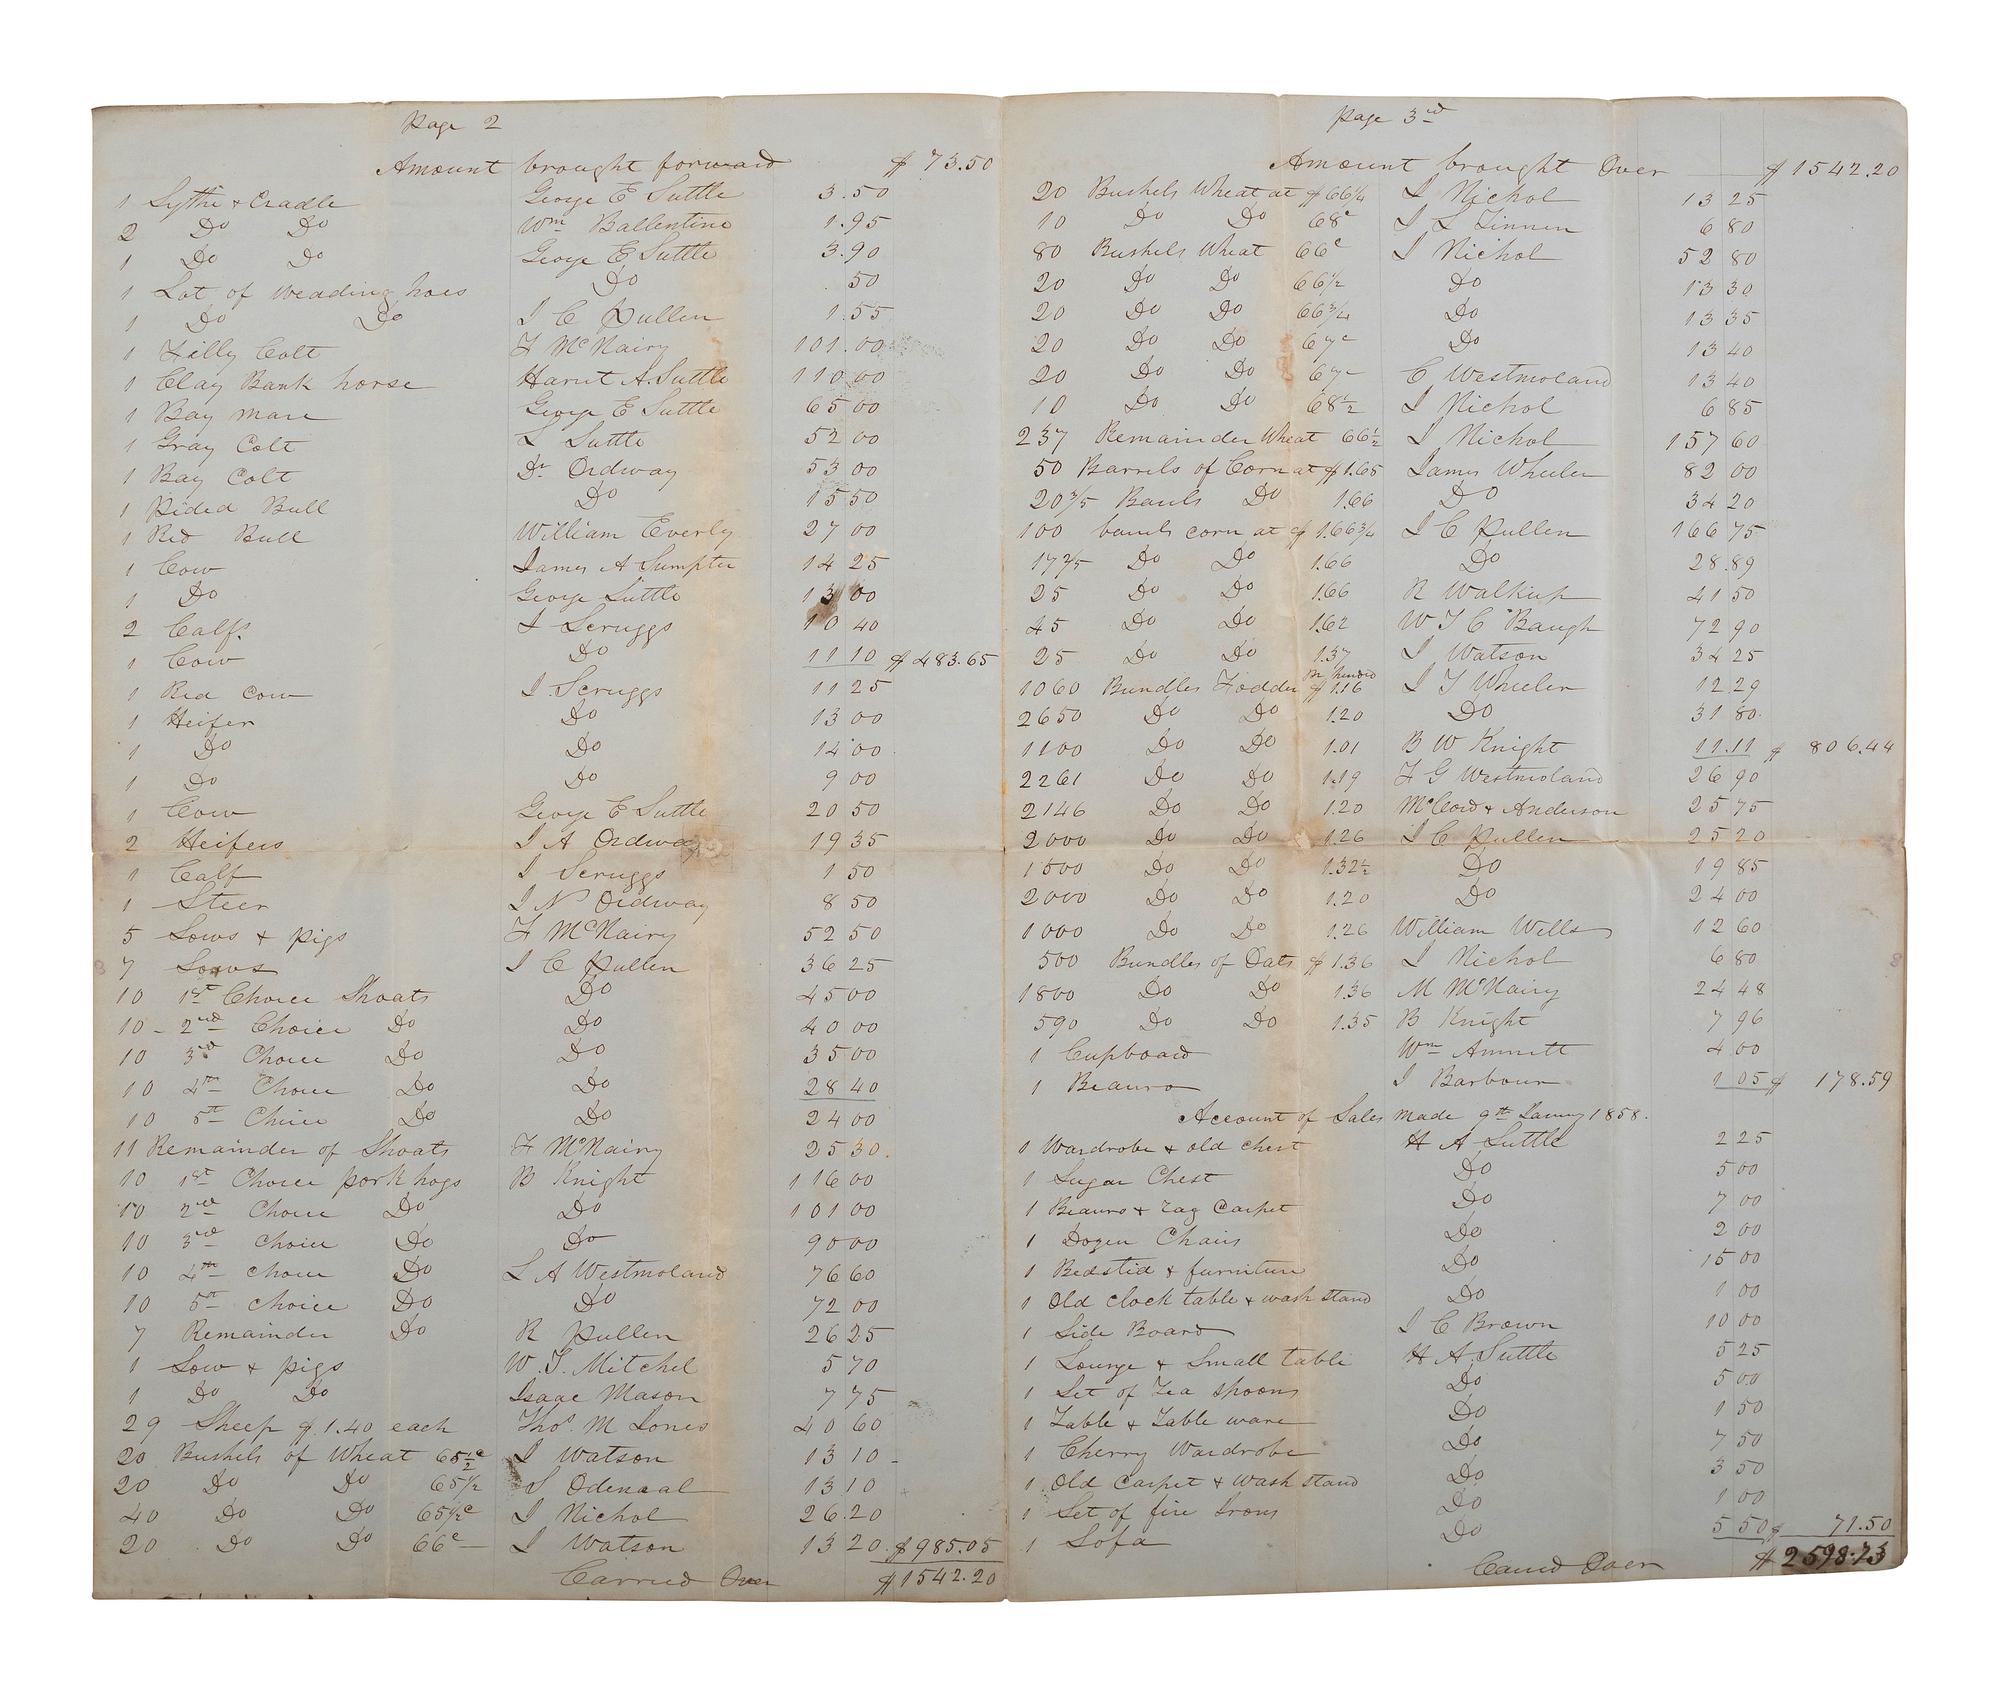 Page 2
Amount brought forward $ 73.50
1 Sythe & Cradle George E Suttle 3.50
2 Do Do Wm Ballentine 1.95
1 Do Do George E Suttle 3.90
1 Lot of Weading hoes Do 50
1 Do Do J C Pullen 1.55
1 Filly Colt F McNairy 101.00
1 Clay Bank horse Harut A. Suttle 110 00
1 Bay mare George E Suttle 65 00
1 Gray Colt L Suttle 52 00
1 Bay Colt Dr Ordway 53 00
1 Pided Bull Do 15 50
1 Red Bull William Everly 27 00
1 Cow James A Sumpter 14 25
1 Do George Suttle 13 00
2 Calfs. J Scruggs 10 40
1 Cow Do 11 10 $ 483.65
1 Red Cow J Scruggs 11 25
1 Heifer Do 13 00
1 Do Do 14 00
1 Do Do 9 00
1 Cow George E Suttle 20 50
2 Heifers J A Ordway 19 35
1 Calf J Scruggs 1 50
1 Steer J N Ordway 8 50
5 Sows & pigs F McNairy 52 50
7 Sows J C Pullen 36 25
10 1st Choice Shoats Do 45 00
10 - 2nd Choice Do Do 40 00
10 3rd Choice Do Do 35 00
10 4th Choice Do Do 28 40
10 5th Choice Do Do 24 00
11 Remainder of Shoats F McNairy 25 30.
10 1st Choice pork hogs B Knight 116 00
10 2nd Choice Do Do 101 00
10 3rd Choice Do Do 90 00
10 4th Choice Do L A Westmoland 76 60
10 5th Choice Do Do 72 00
7 Remainder Do R Pullen 26 25
1 Sow & pigs W. T. Mitchel 5 70
1 Do Do Isaac Mason 7 75
29 Sheep $ 1.40 each Thos M Jones 40 60
20 Bushels of Wheat 65½c J Watson 13 10
20 Do Do 65½ S Odeneal 13 10
40 Do Do 65½c J Nichol 26.20
20 Do Do 66c J Watson 13 20. $ 985.05
Carried Over $ 1542.20
Page 3rd
Amount brought Over $ 1542.20
20 Bushels Wheat at $ 66¼ J Nichol 13 25
10 Do Do 68c J L Linnen 6 80
80 Bushels Wheat 66c J Nichol 52 80
20 Do Do 66½ Do 13 30
20 Do Do 66¾ Do 13 35
20 Do Do 67c Do 13 40
20 Do Do 67c C Westmoland 13 40
10 Do Do 68½ J Nichol 6 85
237 Remainder Wheat 66½ J Nichol 157 60
50 Barrels of Corn at $ 1.65 James Wheeler 82 00
20 3/5 Barrels Do 1.66 Do 34 20
100 barrels corn at $ 1.66¾ J C Pullen 166 75
17 2/5 Do Do 1.66 Do 28.89
25 Do Do 1.66 R Walkup 41 50
45 Do Do 1.62 W T C Baugh 72 90
25 Do Do 1.37 J Watson 34 25
1060 Bundles Fodder Pr hundred $ 1.16 J T Wheeler 12 29
2650 Do Do 1.20 Do 31 80
1100 Do Do 1.01 B W Knight 11.11 $ 806.44
2261 Do Do 1.19 F G Westmoland 26 90
2146 Do Do 1.20 McCord & Anderson 25 75
2000 Do Do 1.26 J C Pullen 25 20
1500 Do Do 1.32½ Do 19 85
2000 Do Do 1.20 Do 24 00
1000 Do Do 1.26 William Wells 12 60
500 Bundles of Oats $ 1.36 J Nichol 6 80
1800 Do Do 1.36 M McNairy 24 48
590 Do Do 1.35 B Knight 7 96
1 Cupboard Wm Ammett 4 00
1 Beauro J Barbour 1 05 $ 178.59
Account of Sales made 9th Janury 1858.
1 Wardrobe & old chest H A Suttle 2 25
1 Sugar Chest Do 5 00
1 Beauro & rag Carpet Do 7 00
1 Dozen Chairs Do 2 00
1 Bedstid & furniture Do 15 00
1 Old clock table & wash stand Do 1 00
1 Side Board J C Brown 10 00
1 Lounge & Small table H A. Suttle 5 25
1 Set of Tea spoons Do 5 00
1 Table & Table ware Do 1 50
1 Cherry Wardrobe Do 7 50
1 Old Carpet & Wash stand Do 3 50
1 Set of fire Irons Do 1 00
1 Sofa Do 5 50 $ 71.50
Carrid Over $ 2598.73